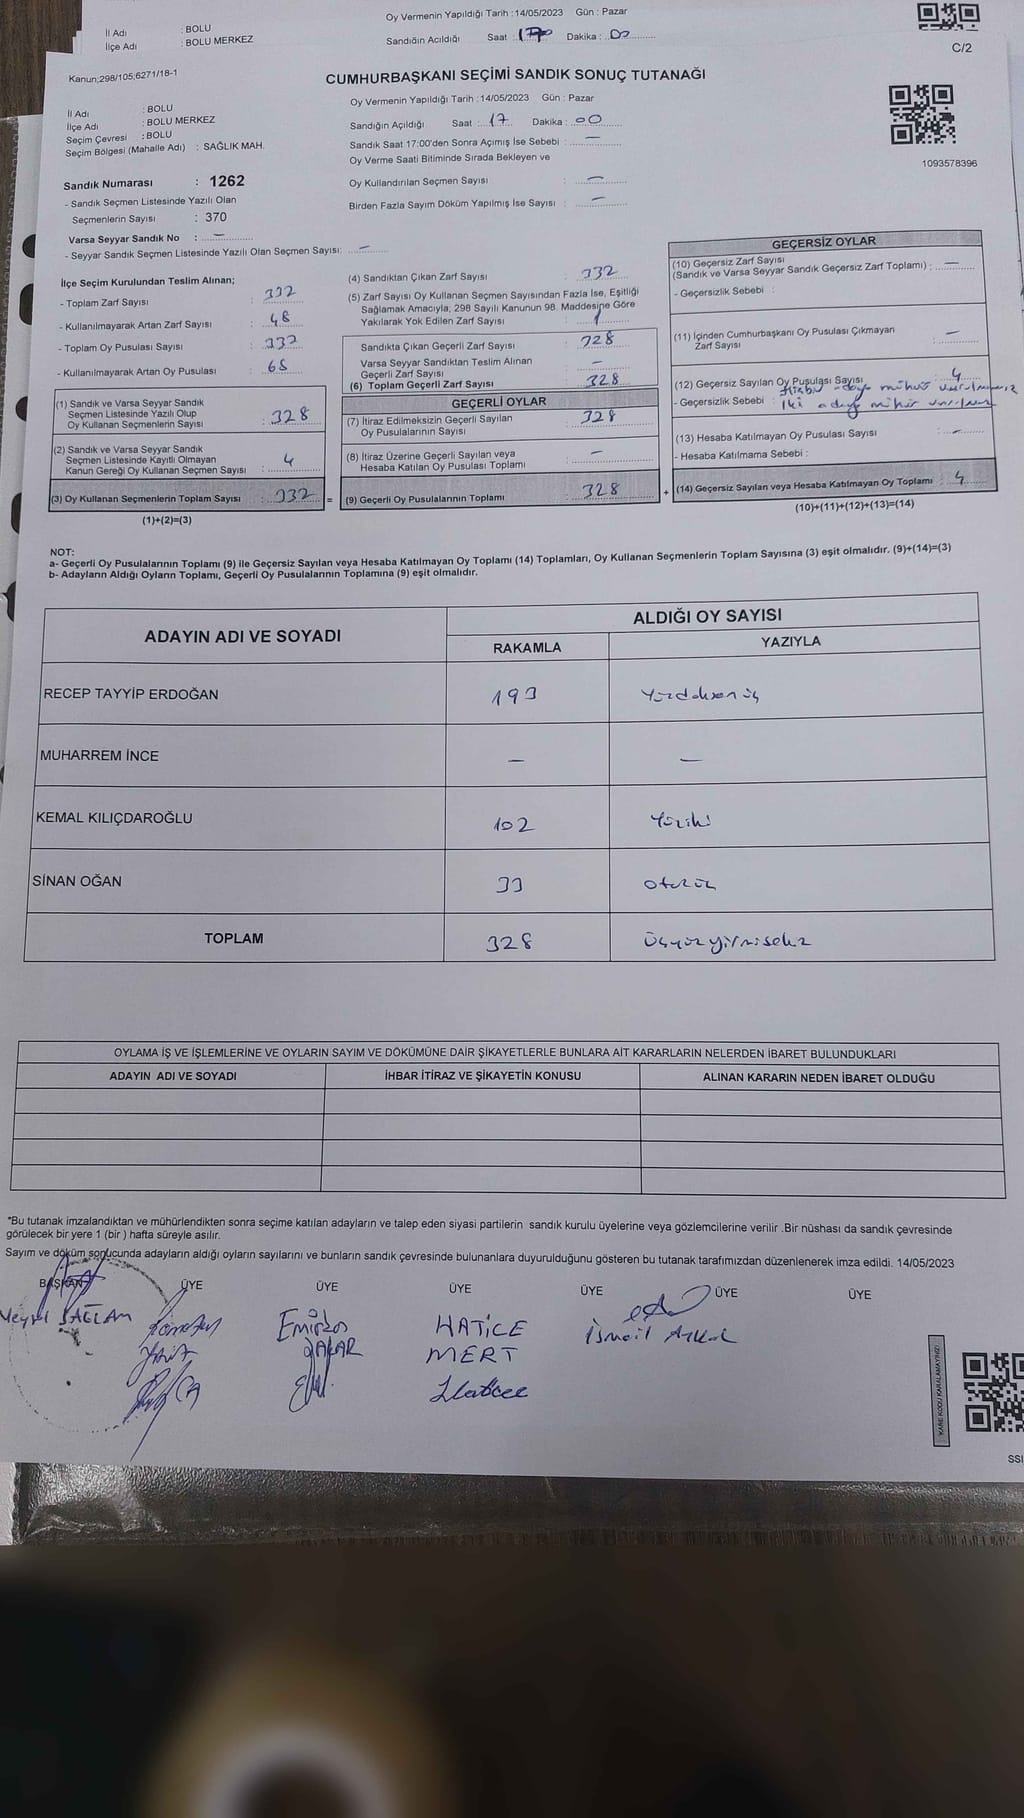 Oy Vermenin Yapıldığı Tarih :14/05/2023 Gün : Pazar
İl Adı : BOLU
İlçe Adı : BOLU MERKEZ
Sandığın Açıldığı Saat : 17 Dakika : 00
C/2
Kanun;298/105;6271/18-1
CUMHURBAŞKANI SEÇİMİ SANDIK SONUÇ TUTANAĞI
İl Adı : BOLU
İlçe Adı : BOLU MERKEZ
Seçim Çevresi : BOLU
Seçim Bölgesi (Mahalle Adı) : SAĞLIK MAH.
Oy Vermenin Yapıldığı Tarih :14/05/2023 Gün : Pazar
Sandığın Açıldığı Saat : 17 Dakika : 00
Sandık Saat 17:00'den Sonra Açımış İse Sebebi : —
Oy Verme Saati Bitiminde Sırada Bekleyen ve
Oy Kullandırılan Seçmen Sayısı : —
Birden Fazla Sayım Döküm Yapılmış İse Sayısı : —
1093578396
Sandık Numarası : 1262
- Sandık Seçmen Listesinde Yazılı Olan
Seçmenlerin Sayısı : 370
Varsa Seyyar Sandık No : —
- Seyyar Sandık Seçmen Listesinde Yazılı Olan Seçmen Sayısı: —
İlçe Seçim Kurulundan Teslim Alınan;
- Toplam Zarf Sayısı :
- Kullanılmayarak Artan Zarf Sayısı : 48
- Toplam Oy Pusulası Sayısı :
- Kullanılmayarak Artan Oy Pusulası : 68
(1) Sandık ve Varsa Seyyar Sandık
Seçmen Listesinde Yazılı Olup
Oy Kullanan Seçmenlerin Sayısı : 328
(2) Sandık ve Varsa Seyyar Sandık
Seçmen Listesinde Kayıtlı Olmayan
Kanun Gereği Oy Kullanan Seçmen Sayısı : 4
(3) Oy Kullanan Seçmenlerin Toplam Sayısı : 332 =
(1)+(2)=(3)
(4) Sandıktan Çıkan Zarf Sayısı : 332
(5) Zarf Sayısı Oy Kullanan Seçmen Sayısından Fazla İse, Eşitliği
Sağlamak Amacıyla, 298 Sayılı Kanunun 98. Maddesine Göre
Yakılarak Yok Edilen Zarf Sayısı :
Sandıkta Çıkan Geçerli Zarf Sayısı : 328
Varsa Seyyar Sandıktan Teslim Alınan
Geçerli Zarf Sayısı : —
(6) Toplam Geçerli Zarf Sayısı : 328
GEÇERLİ OYLAR
(7) İtiraz Edilmeksizin Geçerli Sayılan
Oy Pusulalarının Sayısı : 328
(8) İtiraz Üzerine Geçerli Sayılan veya
Hesaba Katılan Oy Pusulası Toplamı : —
(9) Geçerli Oy Pusulalarının Toplamı : 328 +
GEÇERSİZ OYLAR
(10) Geçersiz Zarf Sayısı
(Sandık ve Varsa Seyyar Sandık Geçersiz Zarf Toplamı) : —
- Geçersizlik Sebebi :
(11) İçinden Cumhurbaşkanı Oy Pusulası Çıkmayan
Zarf Sayısı : —
(12) Geçersiz Sayılan Oy Pusulası Sayısı : 4
- Geçersizlik Sebebi : Hiçbir adaya mühür vurulmamış
İki adaya mühür
(13) Hesaba Katılmayan Oy Pusulası Sayısı : —
- Hesaba Katılmama Sebebi :
(14) Geçersiz Sayılan veya Hesaba Katılmayan Oy Toplamı : 4
(10)+(11)+(12)+(13)=(14)
NOT:
a- Geçerli Oy Pusulalarının Toplamı (9) ile Geçersiz Sayılan veya Hesaba Katılmayan Oy Toplamı (14) Toplamları, Oy Kullanan Seçmenlerin Toplam Sayısına (3) eşit olmalıdır. (9)+(14)=(3)
b- Adayların Aldığı Oyların Toplamı, Geçerli Oy Pusulalarının Toplamına (9) eşit olmalıdır.
ADAYIN ADI VE SOYADI
ALDIĞI OY SAYISI
RAKAMLA YAZIYLA
RECEP TAYYİP ERDOĞAN 193 Yüzdoksanüç
MUHARREM İNCE — —
KEMAL KILIÇDAROĞLU 102 Yüziki
SİNAN OĞAN 33 Otuzüç
TOPLAM 328 Üçyüzyirmisekiz
OYLAMA İŞ VE İŞLEMLERİNE VE OYLARIN SAYIM VE DÖKÜMÜNE DAİR ŞİKAYETLERLE BUNLARA AİT KARARLARIN NELERDEN İBARET BULUNDUKLARI
ADAYIN ADI VE SOYADI İHBAR İTİRAZ VE ŞİKAYETİN KONUSU ALINAN KARARIN NEDEN İBARET OLDUĞU
*Bu tutanak imzalandıktan ve mühürlendikten sonra seçime katılan adayların ve talep eden siyasi partilerin sandık kurulu üyelerine veya gözlemcilerine verilir .Bir nüshası da sandık çevresinde
görülecek bir yere 1 (bir ) hafta süreyle asılır.
Sayım ve döküm sonucunda adayların aldığı oyların sayılarını ve bunların sandık çevresinde bulunanlara duyurulduğunu gösteren bu tutanak tarafımızdan düzenlenerek imza edildi. 14/05/2023
BAŞKAN ÜYE ÜYE ÜYE ÜYE ÜYE ÜYE
SAĞLAM
HATİCE
MERT
Hatice
İsmail
KARE KODU KARALAMAYINIZ!
SSI